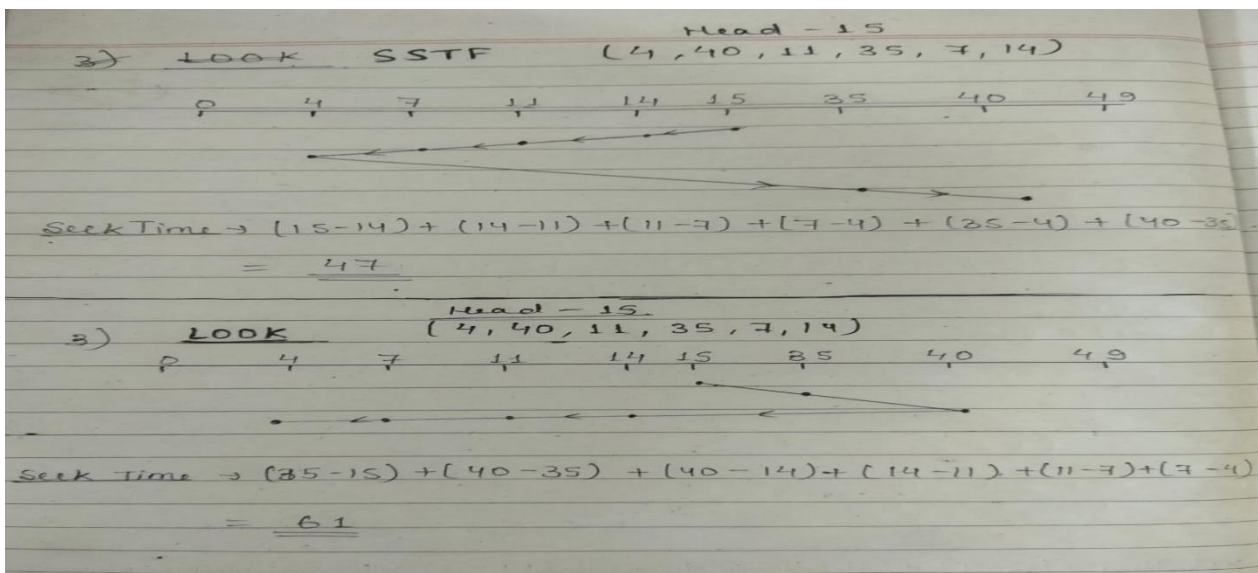 Head - 15
3) LOOK SSTF (4, 40, 11, 35, 7, 14)
0 4 7 11 14 15 35 40 49
Seek Time → (15-14) + (14-11) + (11-7) + (7-4) + (35-4) + (40-35)
= 47
Head - 15.
3) LOOK (4, 40, 11, 35, 7, 14)
0 4 7 11 14 15 35 40 49
Seek Time → (35-15) + (40-35) + (40-14) + (14-11) + (11-7) + (7-4)
= 61